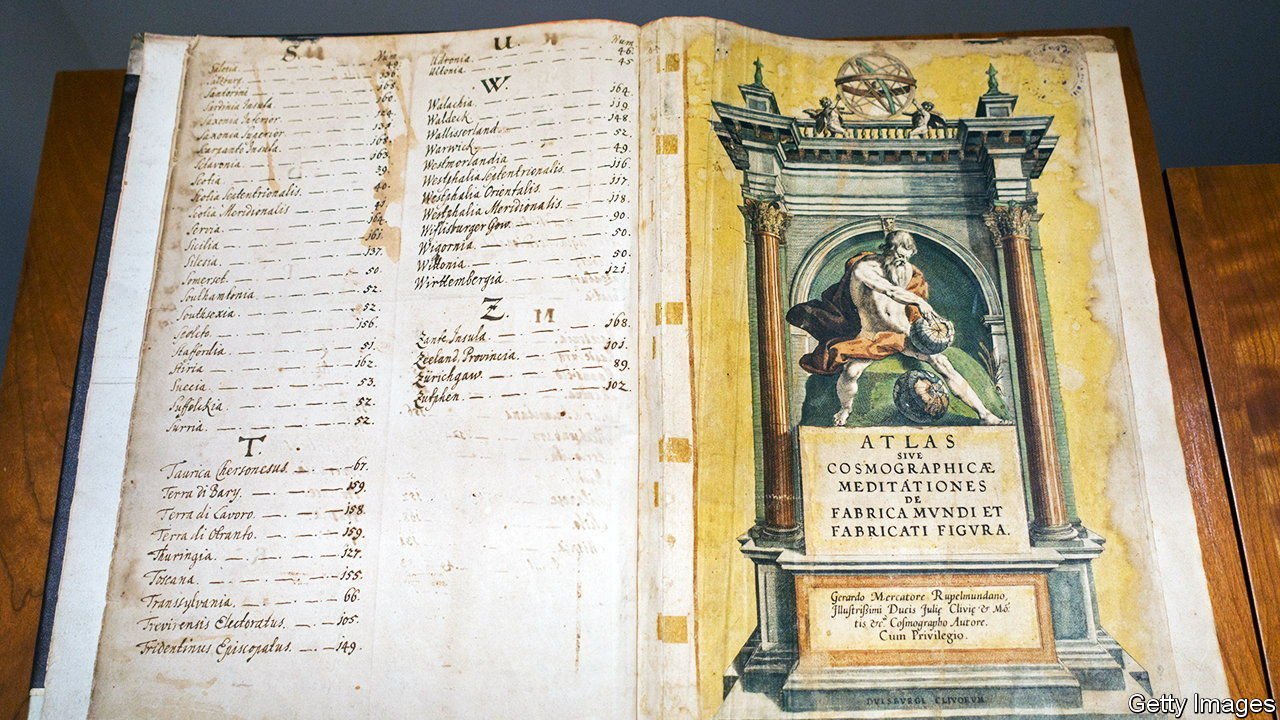 S.
Num
Saletia. 49.
Saltburg.
Santorini 168.
Sardinia Insula. 160.
Saxonia Inferior.
Saxonia Superior.
Sarzante Insula. 168.
Sclavonia. 163.
Scotia 39.
Scotia Septentrionalis. 40.
Scotia Meridionalis 41.
Servia. 164.
Sicilia 161.
Silesia. 137.
Somerset. 50.
Southamtonia. 52.
Southsexia. 52.
156.
Staffordia. 51.
Stiria 162.
Suecia. 53.
Suffolckia. 52.
Surria. 52.
T.
Taurica Chersonesus. 67.
Terra di Bary. 159.
Terra di Lavoro. 158.
Terra di Otranto. 159.
Thuringia. 127.
Toscana. 155.
Transsylvania. 66.
Trevirensis Electoratus. 105.
Tridentinus Episcopatus. 149.
U.
Num
Udronia. 46.
Ultonia. 45
W.
Walachia. 164.
Waldeck 119.
Wallisserland. 148.
Warwick. 52.
Westmorlandia 49.
Westphalia Septentrionalis. 116.
Westphalia Orientalis. 117.
Westphalia Meridionalis. 118.
Wiflisburger Gow. 90.
Wigornia. 50.
Wiltonia. 50.
Wirttembergia. 121.
Z.
Zante Insula. 168.
Zeeland Provincia. 101.
Zürichgaw. 89.
Zutphen. 102.
ATLAS
SIVE
COSMOGRAPHICÆ
MEDITATIONES
DE
FABRICA MVNDI ET
FABRICATI FIGVRA.
Gerardo Mercatore Rupelmundano,
Illustrißimi Ducis Julię Clivię & Mõ:
tis &c. Cosmographo Autore.
Cum Privilegio.
DVISBVRGI CLIVORVM
Getty Images